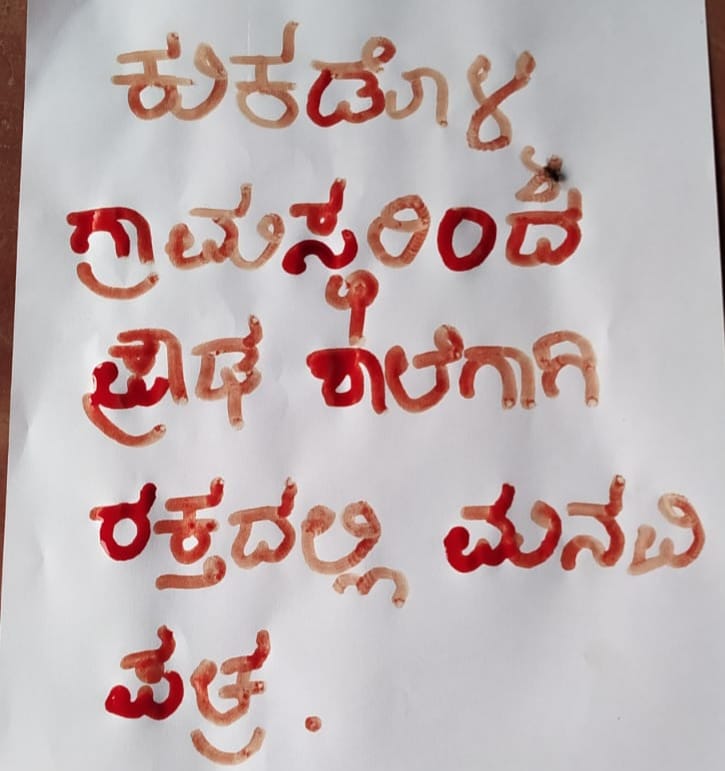 ಕುಕಡೊಳ್ಳಿ
ಗ್ರಾಮಸ್ಥರಿಂದ
ಪ್ರೌಢ ಶಾಲೆಗಾಗಿ
ರಕ್ತದಲ್ಲಿ ಮನವಿ
ಪತ್ರ.